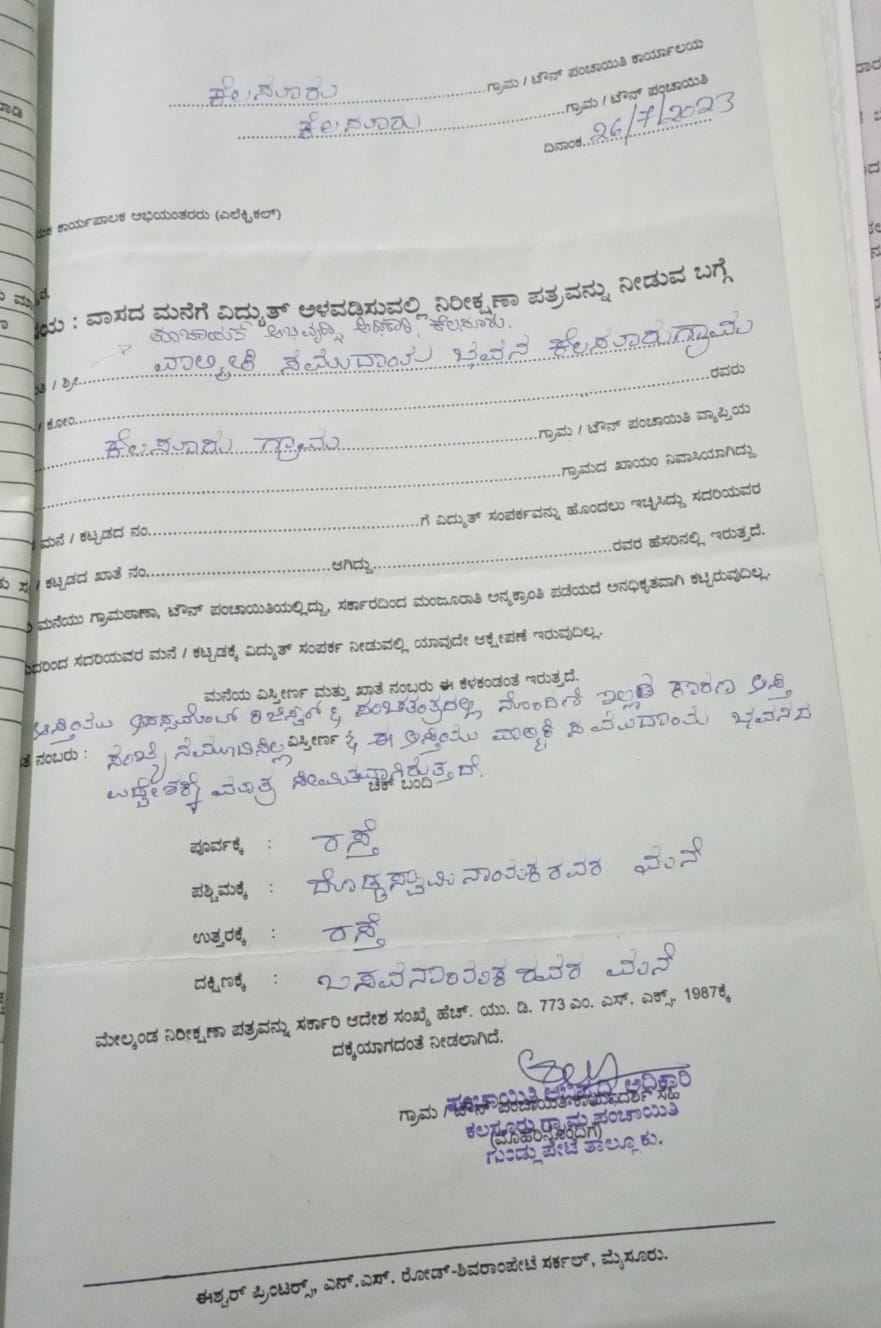 ಕೆಲಸೂರು ಗ್ರಾಮ / ಟೌನ್ ಪಂಚಾಯಿತಿ ಕಾರ್ಯಾಲಯ
ಕೆಲಸೂರು ಗ್ರಾಮ / ಟೌನ್ ಪಂಚಾಯಿತಿ
ದಿನಾಂಕ 26/7/2023
ಕಾರ್ಯಪಾಲಕ ಅಭಿಯಂತರರು (ಎಲೆಕ್ಟ್ರಿಕಲ್)
: ವಾಸದ ಮನೆಗೆ ವಿದ್ಯುತ್ ಅಳವಡಿಸುವಲ್ಲಿ ನಿರೀಕ್ಷಣಾ ಪತ್ರವನ್ನು ನೀಡುವ ಬಗ್ಗೆ
ಪಂಚಾಯತಿ ಅಭಿವೃದ್ಧಿ ಅಧಿಕಾರಿ, ಕೆಲಸೂರು.
/ ಶ್ರೀ ವಾಲ್ಮೀಕಿ ಸಮುದಾಯ ಭವನ ಕೆಲಸೂರು ಗ್ರಾಮ
/ ಕೋಂ ರವರು
ಕೆಲಸೂರು ಗ್ರಾಮ ಗ್ರಾಮ / ಟೌನ್ ಪಂಚಾಯಿತಿ ವ್ಯಾಪ್ತಿಯ
ಗ್ರಾಮದ ಖಾಯಂ ನಿವಾಸಿಯಾಗಿದ್ದು
ಮನೆ / ಕಟ್ಟಡದ ನಂ ಗೆ ವಿದ್ಯುತ್ ಸಂಪರ್ಕವನ್ನು ಹೊಂದಲು ಇಚ್ಛಿಸಿದ್ದು ಸದರಿಯವರ
/ ಕಟ್ಟಡದ ಖಾತೆ ನಂ ಆಗಿದ್ದು ರವರ ಹೆಸರಿನಲ್ಲಿ ಇರುತ್ತದೆ.
ಮನೆಯು ಗ್ರಾಮಠಾಣಾ, ಟೌನ್ ಪಂಚಾಯಿತಿಯಲ್ಲಿದ್ದು, ಸರ್ಕಾರದಿಂದ ಮಂಜೂರಾತಿ ಅನ್ಯಕ್ರಾಂತಿ ಪಡೆಯದೆ ಅನಧಿಕೃತವಾಗಿ ಕಟ್ಟಿರುವುದಿಲ್ಲ.
ಸದರಿಯವರ ಮನೆ / ಕಟ್ಟಡಕ್ಕೆ ವಿದ್ಯುತ್ ಸಂಪರ್ಕ ನೀಡುವಲ್ಲಿ ಯಾವುದೇ ಆಕ್ಷೇಪಣೆ ಇರುವುದಿಲ್ಲ.
ಮನೆಯ ವಿಸ್ತೀರ್ಣ ಮತ್ತು ಖಾತೆ ನಂಬರು ಈ ಕೆಳಕಂಡಂತೆ ಇರುತ್ತದೆ.
ಆಸ್ತಿಯು ಅಸೆಸ್ಮೆಂಟ್ ರಿಜಿಸ್ಟರ್ & ಪಂಚತಂತ್ರದಲ್ಲಿ ನೊಂದಣಿ ಇಲ್ಲದ ಕಾರಣ ಆಸ್ತಿ
ನಂಬರು : ಸಂಖ್ಯೆ ನಮೂದಿಸಿಲ್ಲ ವಿಸ್ತೀರ್ಣ & ಈ ಆಸ್ತಿಯು ವಾಲ್ಮೀಕಿ ಸಮುದಾಯ ಭವನದ
ಉದ್ದೇಶಕ್ಕೆ ಮಾತ್ರ ಸೀಮಿತವಾಗಿರುತ್ತದೆ.
ಚೆಕ್ ಬಂದಿ
ಪೂರ್ವಕ್ಕೆ : ರಸ್ತೆ
ಪಶ್ಚಿಮಕ್ಕೆ : ದೊಡ್ಡಸ್ವಾಮಿ ನಾಯಕ ರವರ ಮನೆ
ಉತ್ತರಕ್ಕೆ : ರಸ್ತೆ
ದಕ್ಷಿಣಕ್ಕೆ : ಬಸವನಾಯಕ ರವರ ಮನೆ
ಮೇಲ್ಕಂಡ ನಿರೀಕ್ಷಣಾ ಪತ್ರವನ್ನು ಸರ್ಕಾರಿ ಆದೇಶ ಸಂಖ್ಯೆ ಹೆಚ್. ಯು. ಡಿ. 773 ಎಂ. ಎಸ್. ಎಕ್ಸ್. 1987ಕ್ಕೆ
ದಕ್ಕೆಯಾಗದಂತೆ ನೀಡಲಾಗಿದೆ.
ಪಂಚಾಯಿತಿ ಅಭಿವೃದ್ಧಿ ಅಧಿಕಾರಿ
ಗ್ರಾಮ / ಟೌನ್ ಪಂಚಾಯಿತಿ ಕಾರ್ಯದರ್ಶಿ ಸಹಿ
ಕಲಸೂರು ಗ್ರಾಮ ಪಂಚಾಯಿತಿ
(ಮೊಹರಿನೊಂದಿಗೆ)
ಗುಂಡ್ಲುಪೇಟೆ ತಾಲ್ಲೂಕು.
ಈಶ್ವರ್ ಪ್ರಿಂಟರ್ಸ್, ಎನ್.ಎಸ್. ರೋಡ್-ಶಿವರಾಂಪೇಟೆ ಸರ್ಕಲ್, ಮೈಸೂರು.